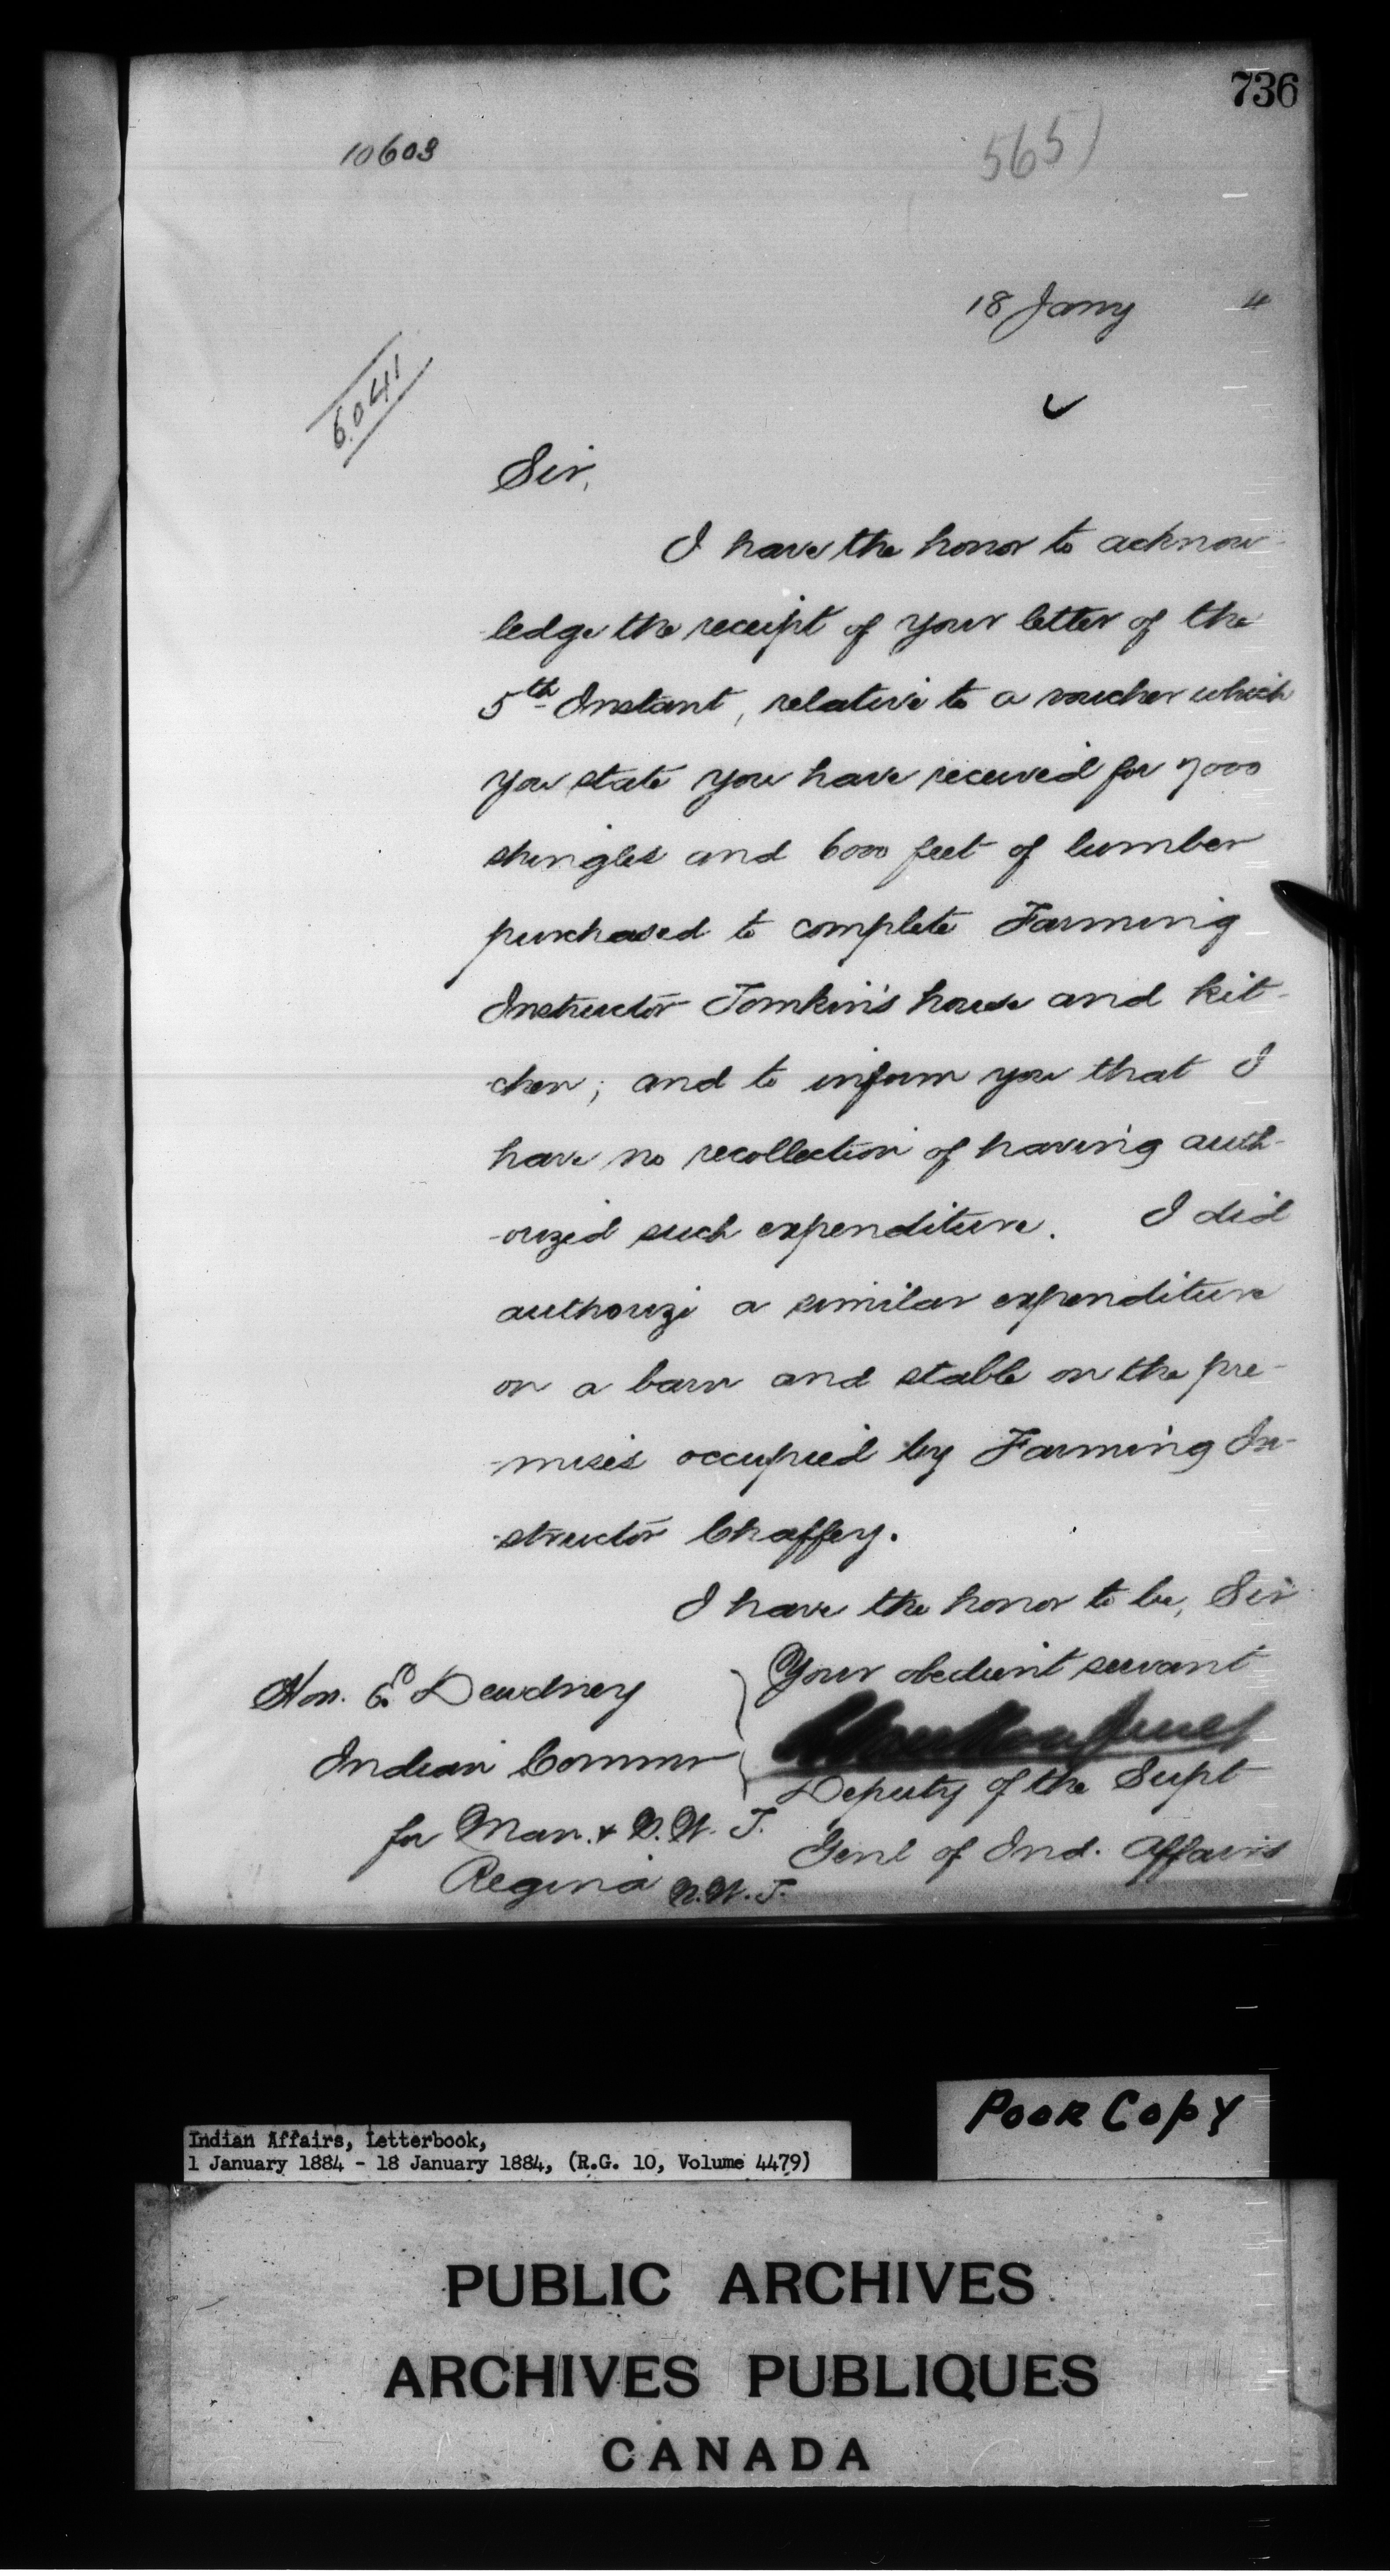 736
10603
565)
18 Jany 4
6041
Sir,
I have the honor to acknow-
ledge the receipt of your letter of the
5th Instant, relative to a voucher which
you state you have received for 7000
shingles and 6000 feet of lumber
purchased to complete Farming
Instructor Tomkin's house and kit-
chen; and to inform you that I
have no recollection of having auth-
-orized such expenditure. I did
authorize a similar expenditure
on a barn and stable on the pre-
-mises occupied by Farming In-
-structor Chaffey.
I have the honor to be, Sir
Your obedient servant
Hon. E. Dewdney
Indian Commr
Deputy of the Supt
for Man. & N.W.T.
Genl of Ind. Affairs
Regina N.W.T.
Poor Copy
Indian Affairs, Letterbook,
1 January 1884 - 18 January 1884, (R.G. 10, Volume 4479)
PUBLIC ARCHIVES
ARCHIVES PUBLIQUES
CANADA